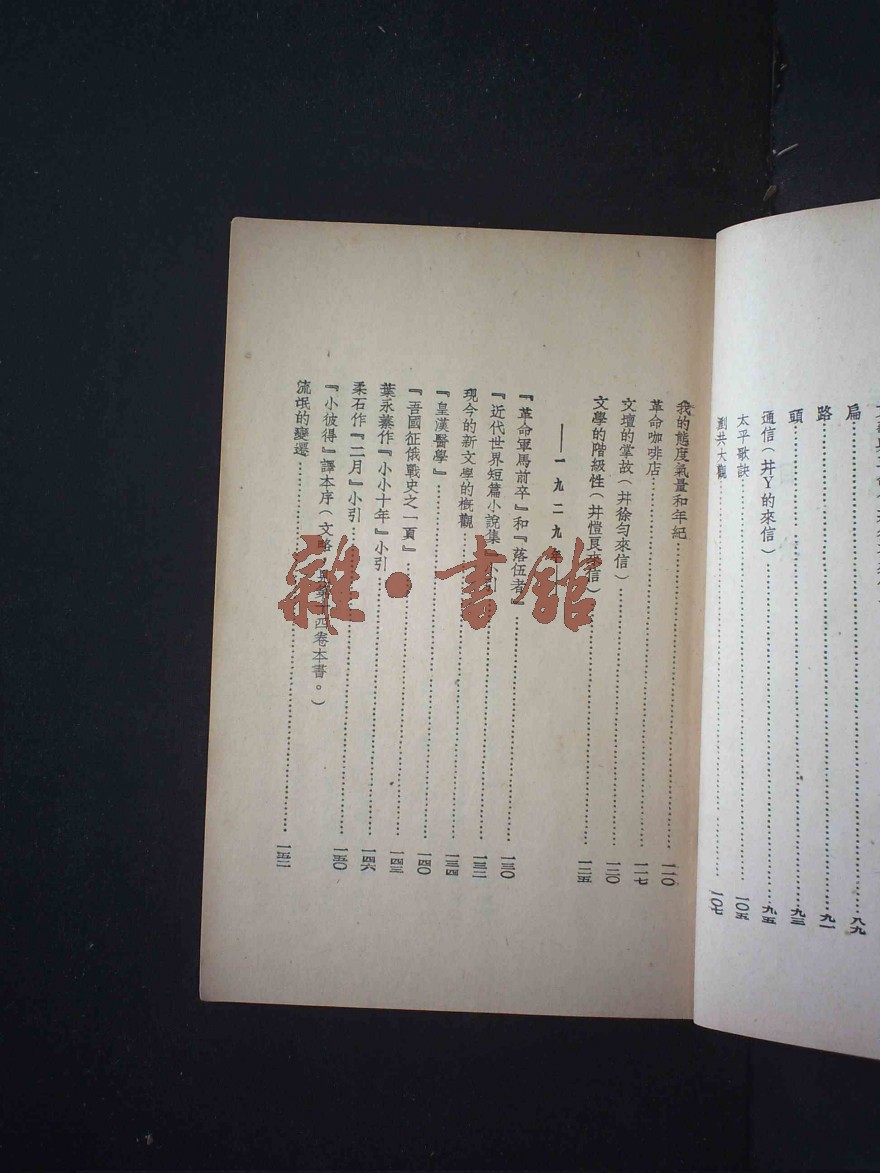 扁……八九
路……九一
頭……九三
通信(幷Y的來信)……九五
太平歌訣……一〇五
剷共大觀……一〇七
我的態度氣量和年紀……一一〇
革命咖啡店……一一七
文壇的掌故(幷徐匀來信)……一二〇
文學的階級性(幷愷良來信)……一二五
——一九二九年
『革命軍馬前卒』和『落伍者』……一三〇
『近代世界短篇小說集』小引……一三二
現今的新文學的概觀……一三四
『皇漢醫學』……一四〇
『吾國征俄戰史之一頁』……一四三
葉永蓁作『小小十年』小引……一四六
柔石作『二月』小引……一五〇
『小彼得』譯本序(文略 十四卷本書。)
流氓的變遷……一五二
雜·書館